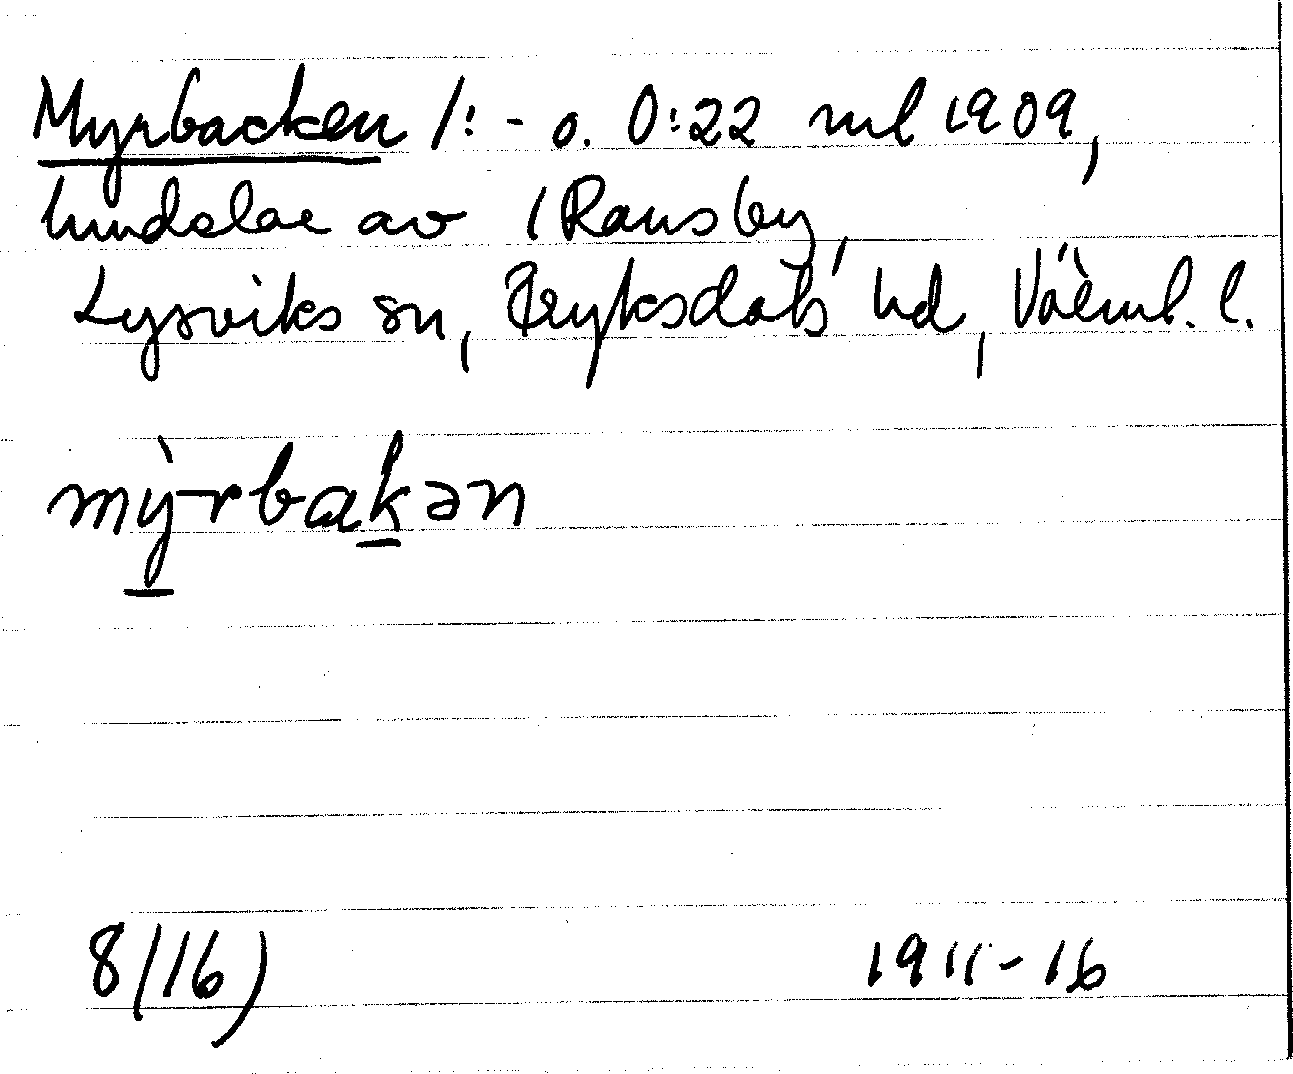 Myrbacken /: - o. 0:22 ml 1909,
lundelar av 1 Ransby,
Lysviks sn, Fryksdals hd, Värml. l.
mỳrbakən
8/16) 1911-16